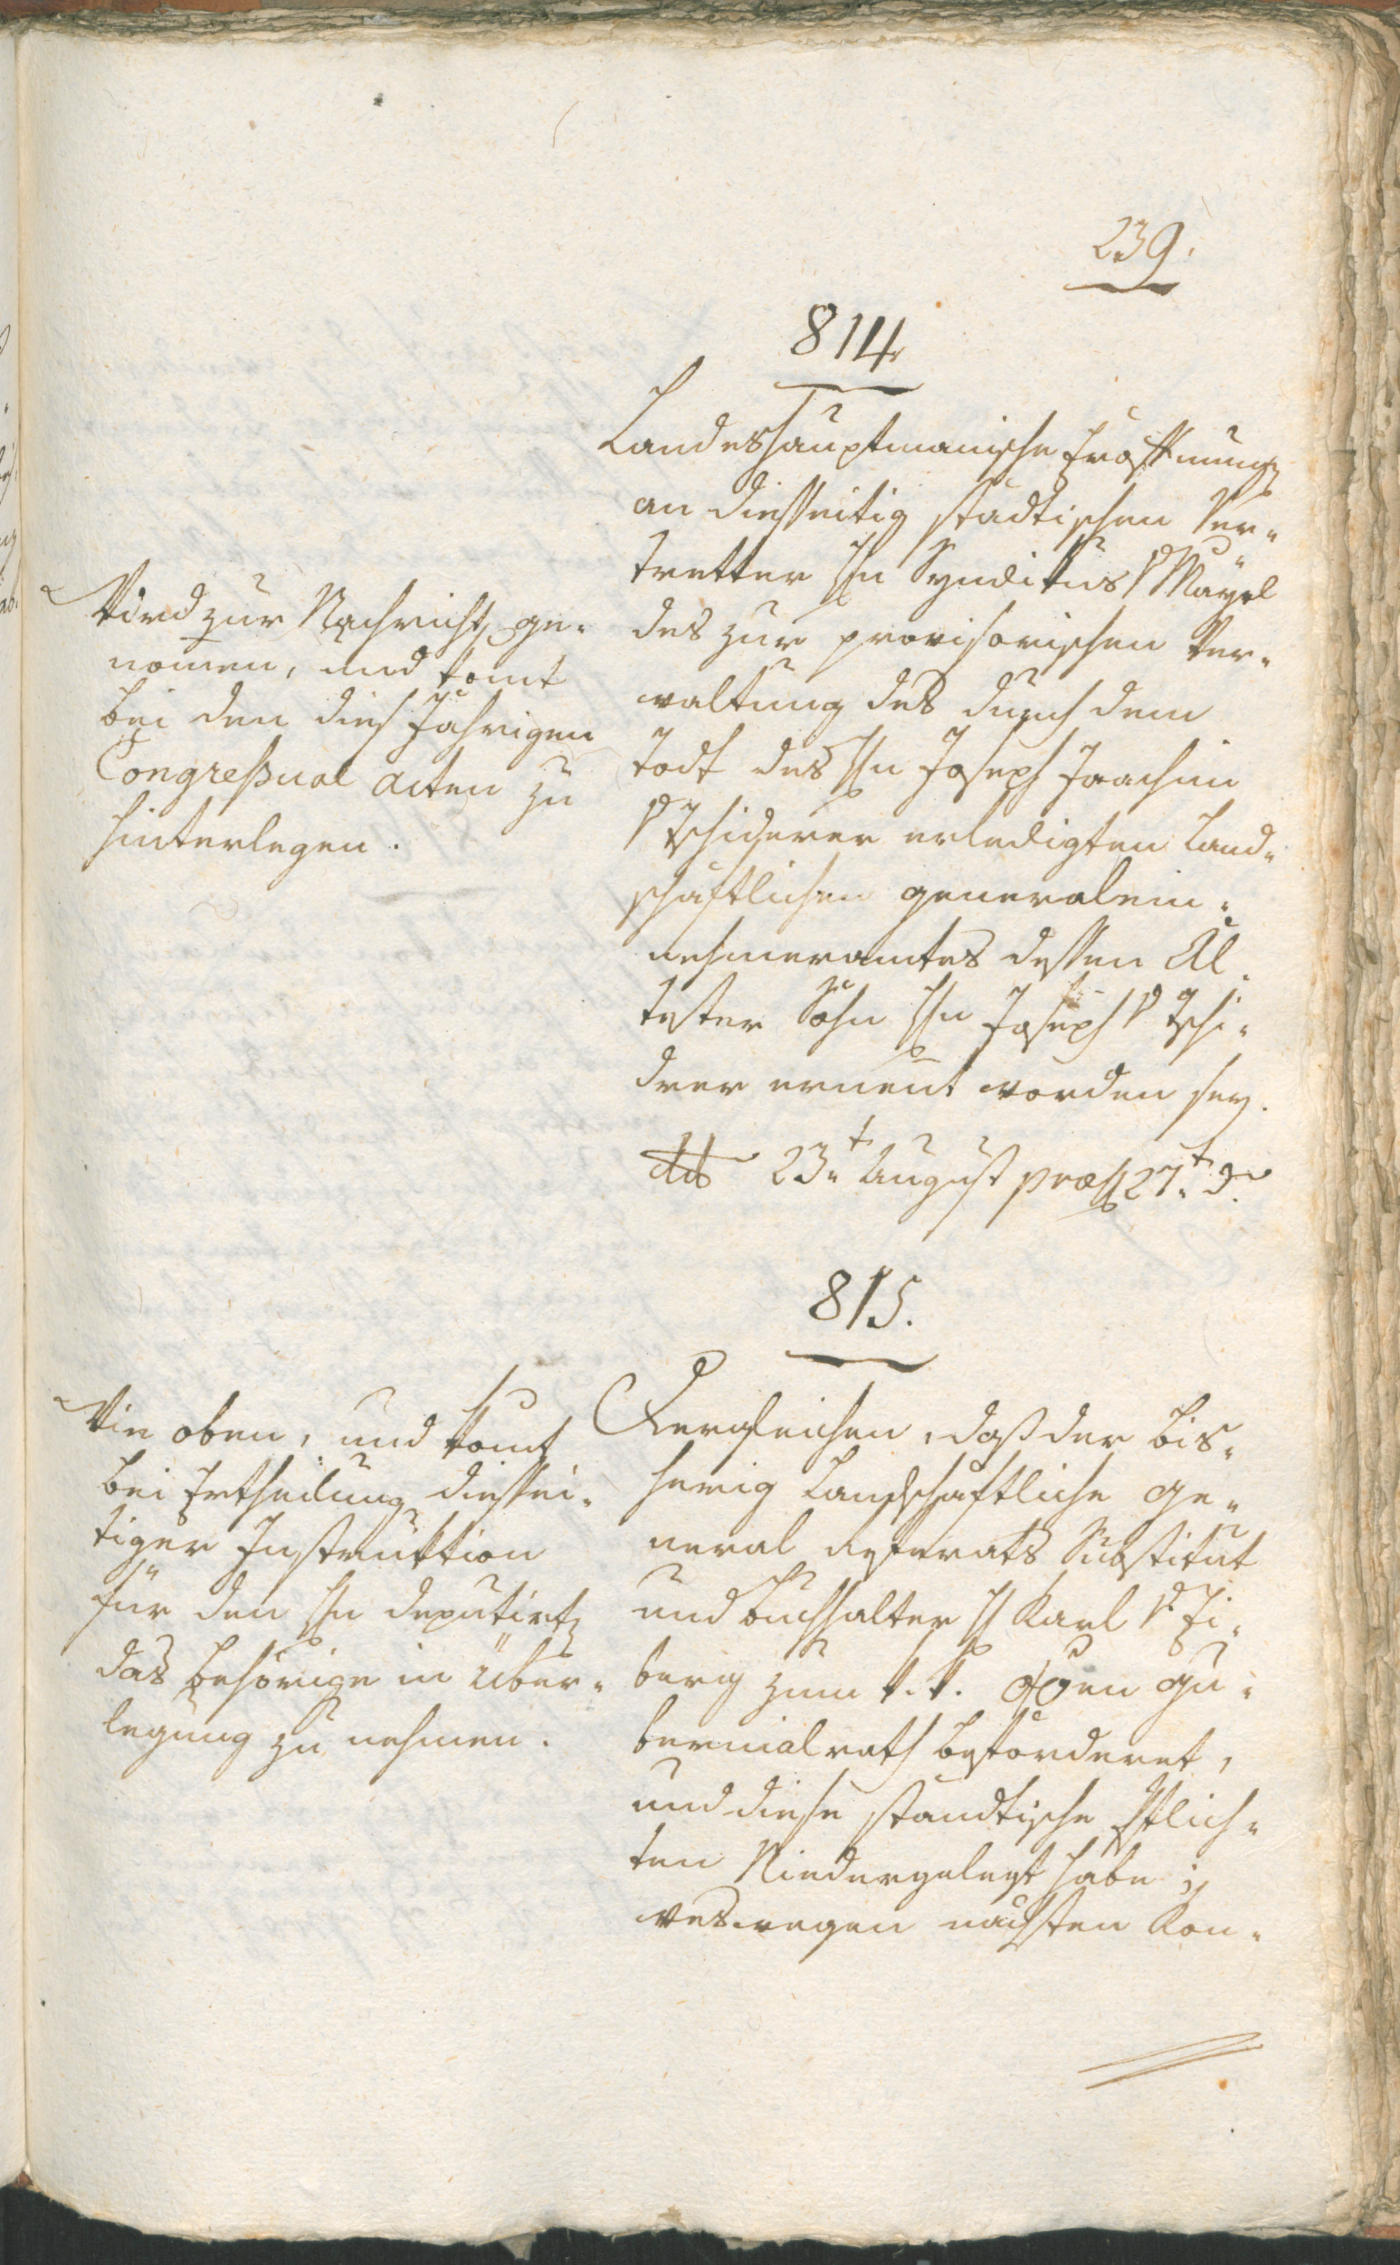 239.
814
Landeshauptmanische Eröffnung
an diesseitig stadtischen Ver-
tretter Hn Syndikus v Mayrl
das zur provisorischen Ver-
waltung des durch dem
Todt des Hn Joseph Joachim
v Tschiderer erledigten Land-
schaftlichen generalein-
nehmeramtes dessen Äl-
tester Sohn Hn Joseph v Tschi-
drer ernent worden sey.
dto 23t August præs 27t
Wird zur Nachricht ge-
nomen, und komt
bei den dies Jahrigen
Congreßual acten zu
hinterlegen.
815.
Dergleichen, daß der bis-
herig Landschaftliche ge-
neral referats Substitut
und Buchhalter H Karl v Ei-
berg zum k. k. Gu-
bernialrath beförderet,
und diese standtische Pflich-
ten Niedergelegt habe;
weswegen nachsten Kon-
Wie oben, und komt
bei Ertheilung diessei-
tiger Instruktion
für den Hn deputirt
das behörige in Über-
legung zu nehmen.